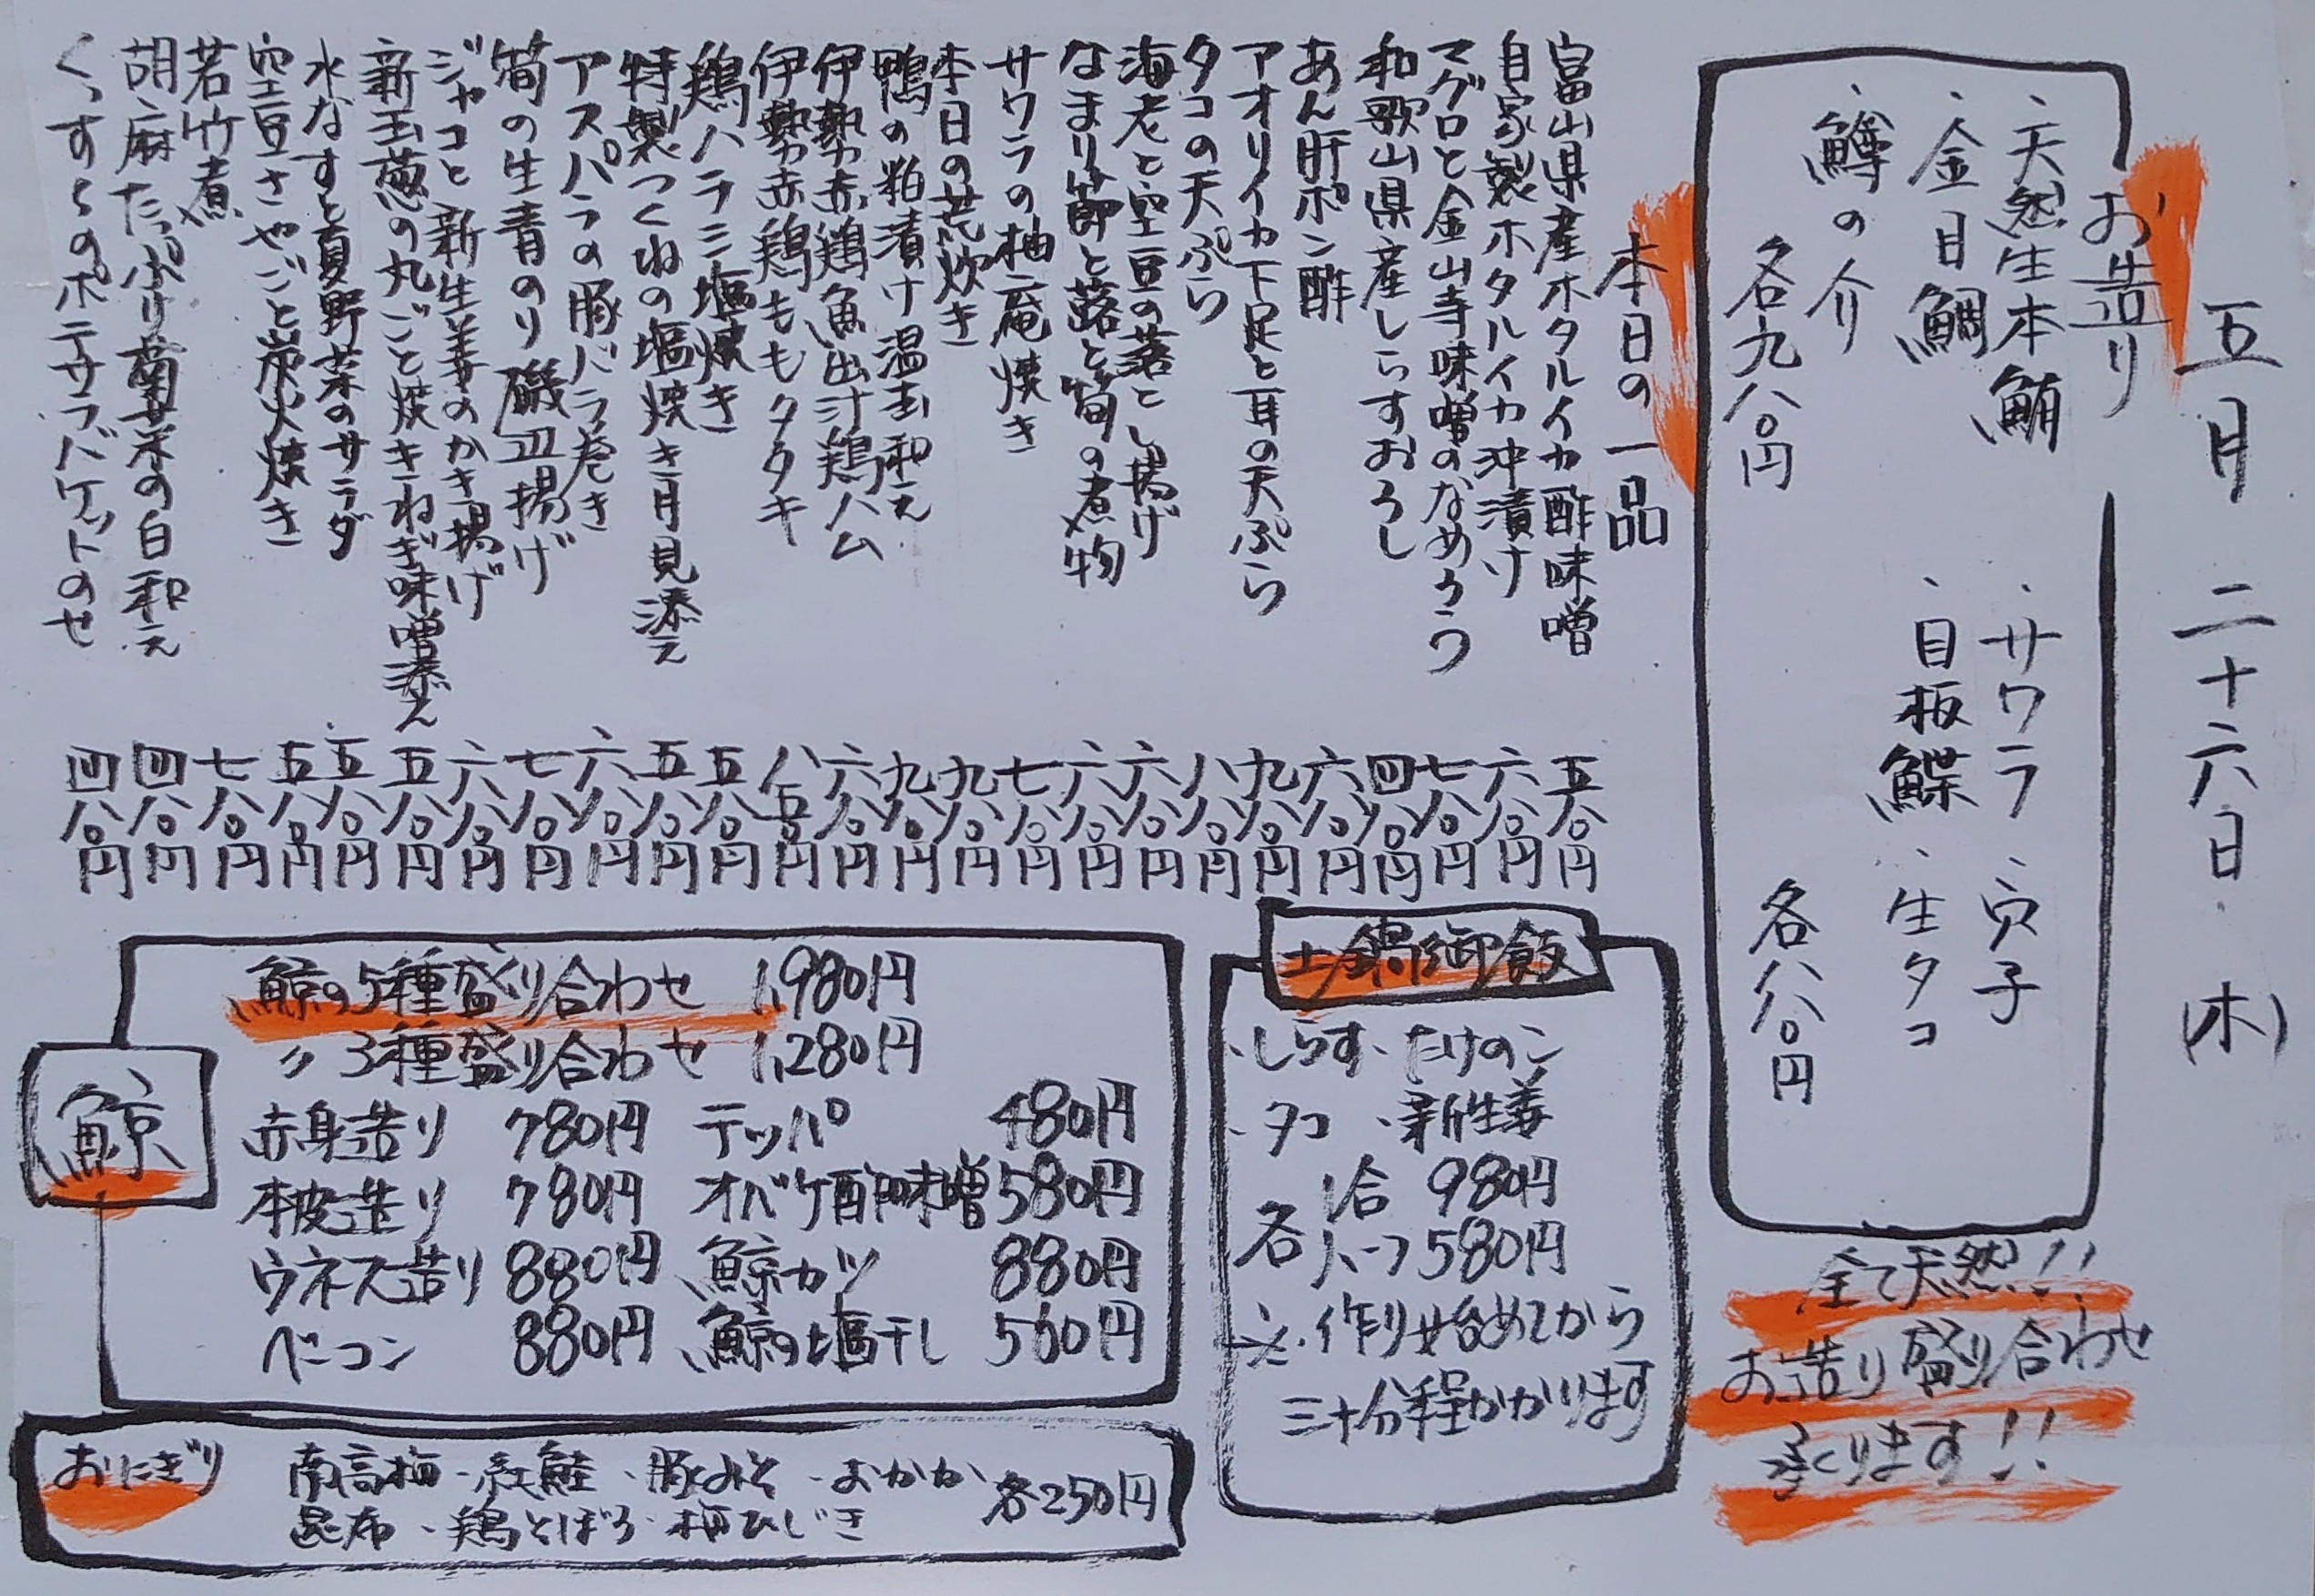 五月二十六日(木)
お造り
・天然生本鮪
・金目鯛
・鱒の介
各九八〇円
・サワラ ・穴子
・目板鰈 ・生タコ
各八八〇円
全て天然!!
お造り盛り合わせ
承ります!!
本日の一品
富山県産ホタルイカ酢味噌 五八〇円
自家製ホタルイカ沖漬け 六八〇円
マグロと金山寺味噌のなめろう 七八〇円
和歌山県産しらすおろし 四八〇円
あん肝ポン酢 六八〇円
アオリイカ下足と耳の天ぷら 九八〇円
タコの天ぷら 八八〇円
海老と空豆の落とし揚げ 六八〇円
なまり節と蕗と筍の煮物 六八〇円
サワラの柚庵焼き 七八〇円
本日の荒炊き 九八〇円
鴨の粕漬け温玉和え 九八〇円
伊勢赤鶏魚出汁鶏ハム 六八〇円
伊勢赤鶏ももタタキ 八五〇円
鶏ハラミ塩焼き 五八〇円
特製つくねの塩焼き月見添え 五八〇円
アスパラの豚バラ巻き 六八〇円
筍の生青のり磯辺揚げ 七八〇円
ジャコと新生姜のかき揚げ 六八〇円
新玉葱の丸ごと焼きねぎ味噌添え 五八〇円
水なすと夏野菜のサラダ 五八〇円
空豆さやごと炭火焼き 五八〇円
若竹煮 七八〇円
胡麻たっぷり菊菜の白和え 四八〇円
くっすんのポテサラバケットのせ 四八〇円
土鍋御飯
・しらす ・たけのこ
・タコ ・新生姜
各 1合 980円
ハーフ 580円
※作り始めてから
三十分程かかります
鯨
鯨の5種盛り合わせ 1,980円
〃 3種盛り合わせ 1,280円
赤身造り 780円 テッパ 480円
本皮造り 780円 オバケ酢味噌 580円
ウネス造り 880円 鯨カツ 880円
ベーコン 880円 鯨の塩干し 560円
おにぎり
南高梅・紅鮭・豚みそ・おかか
昆布・鶏そぼろ・梅ひじき
各250円